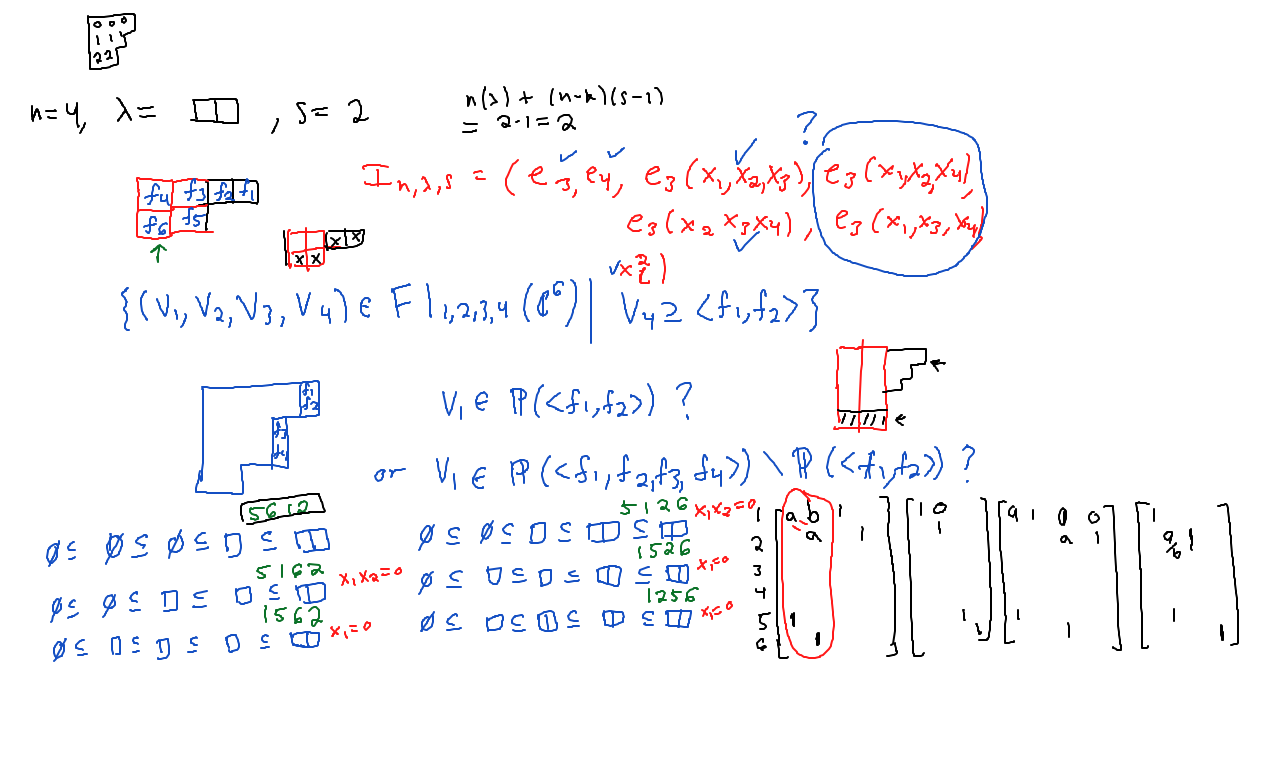 0 0 0
1 1 1
2 2
n=4, λ= □□, s=2
n(λ) + (n-k)(s-1)
= 2·1 = 2
?
I_{n,λ,s} = (e_3, e_4, e_3(x_1,x_2,x_3), e_3(x_1,x_2,x_4),
e_3(x_2 x_3 x_4), e_3(x_1,x_3,x_4)
x_i^2)
f_4 f_3 f_2 f_1
f_6 f_5
x x
x x
{(V_1, V_2, V_3, V_4) ∈ Fl_{1,2,3,4}(ℂ^6) | V_4 ⊇ <f_1,f_2>}
f_1
f_2
f_3
f_4
V_1 ∈ ℙ(<f_1,f_2>) ?
or V_1 ∈ ℙ(<f_1,f_2,f_3,f_4>) \ ℙ(<f_1,f_2>) ?
5612
∅ ⊆ ∅ ⊆ ∅ ⊆ □ ⊆ □□
5162 x_1x_2=0
∅ ⊆ ∅ ⊆ □ ⊆ □ ⊆ □□
1562 x_1=0
∅ ⊆ □ ⊆ □ ⊆ □ ⊆ □□
5126 x_1x_2=0
∅ ⊆ ∅ ⊆ □ ⊆ □□ ⊆ □□
1526 x_1=0
∅ ⊆ □ ⊆ □ ⊆ □□ ⊆ □□
1256 x_1=0
∅ ⊆ □ ⊆ □□ ⊆ □□ ⊆ □□
1 [a b 1 ] [1 0 ] [a 1 0 0] [1 ]
2 a 1 1 a 1 a/b 1
3
4
5 1 1 1 1
6 1 1 1 1